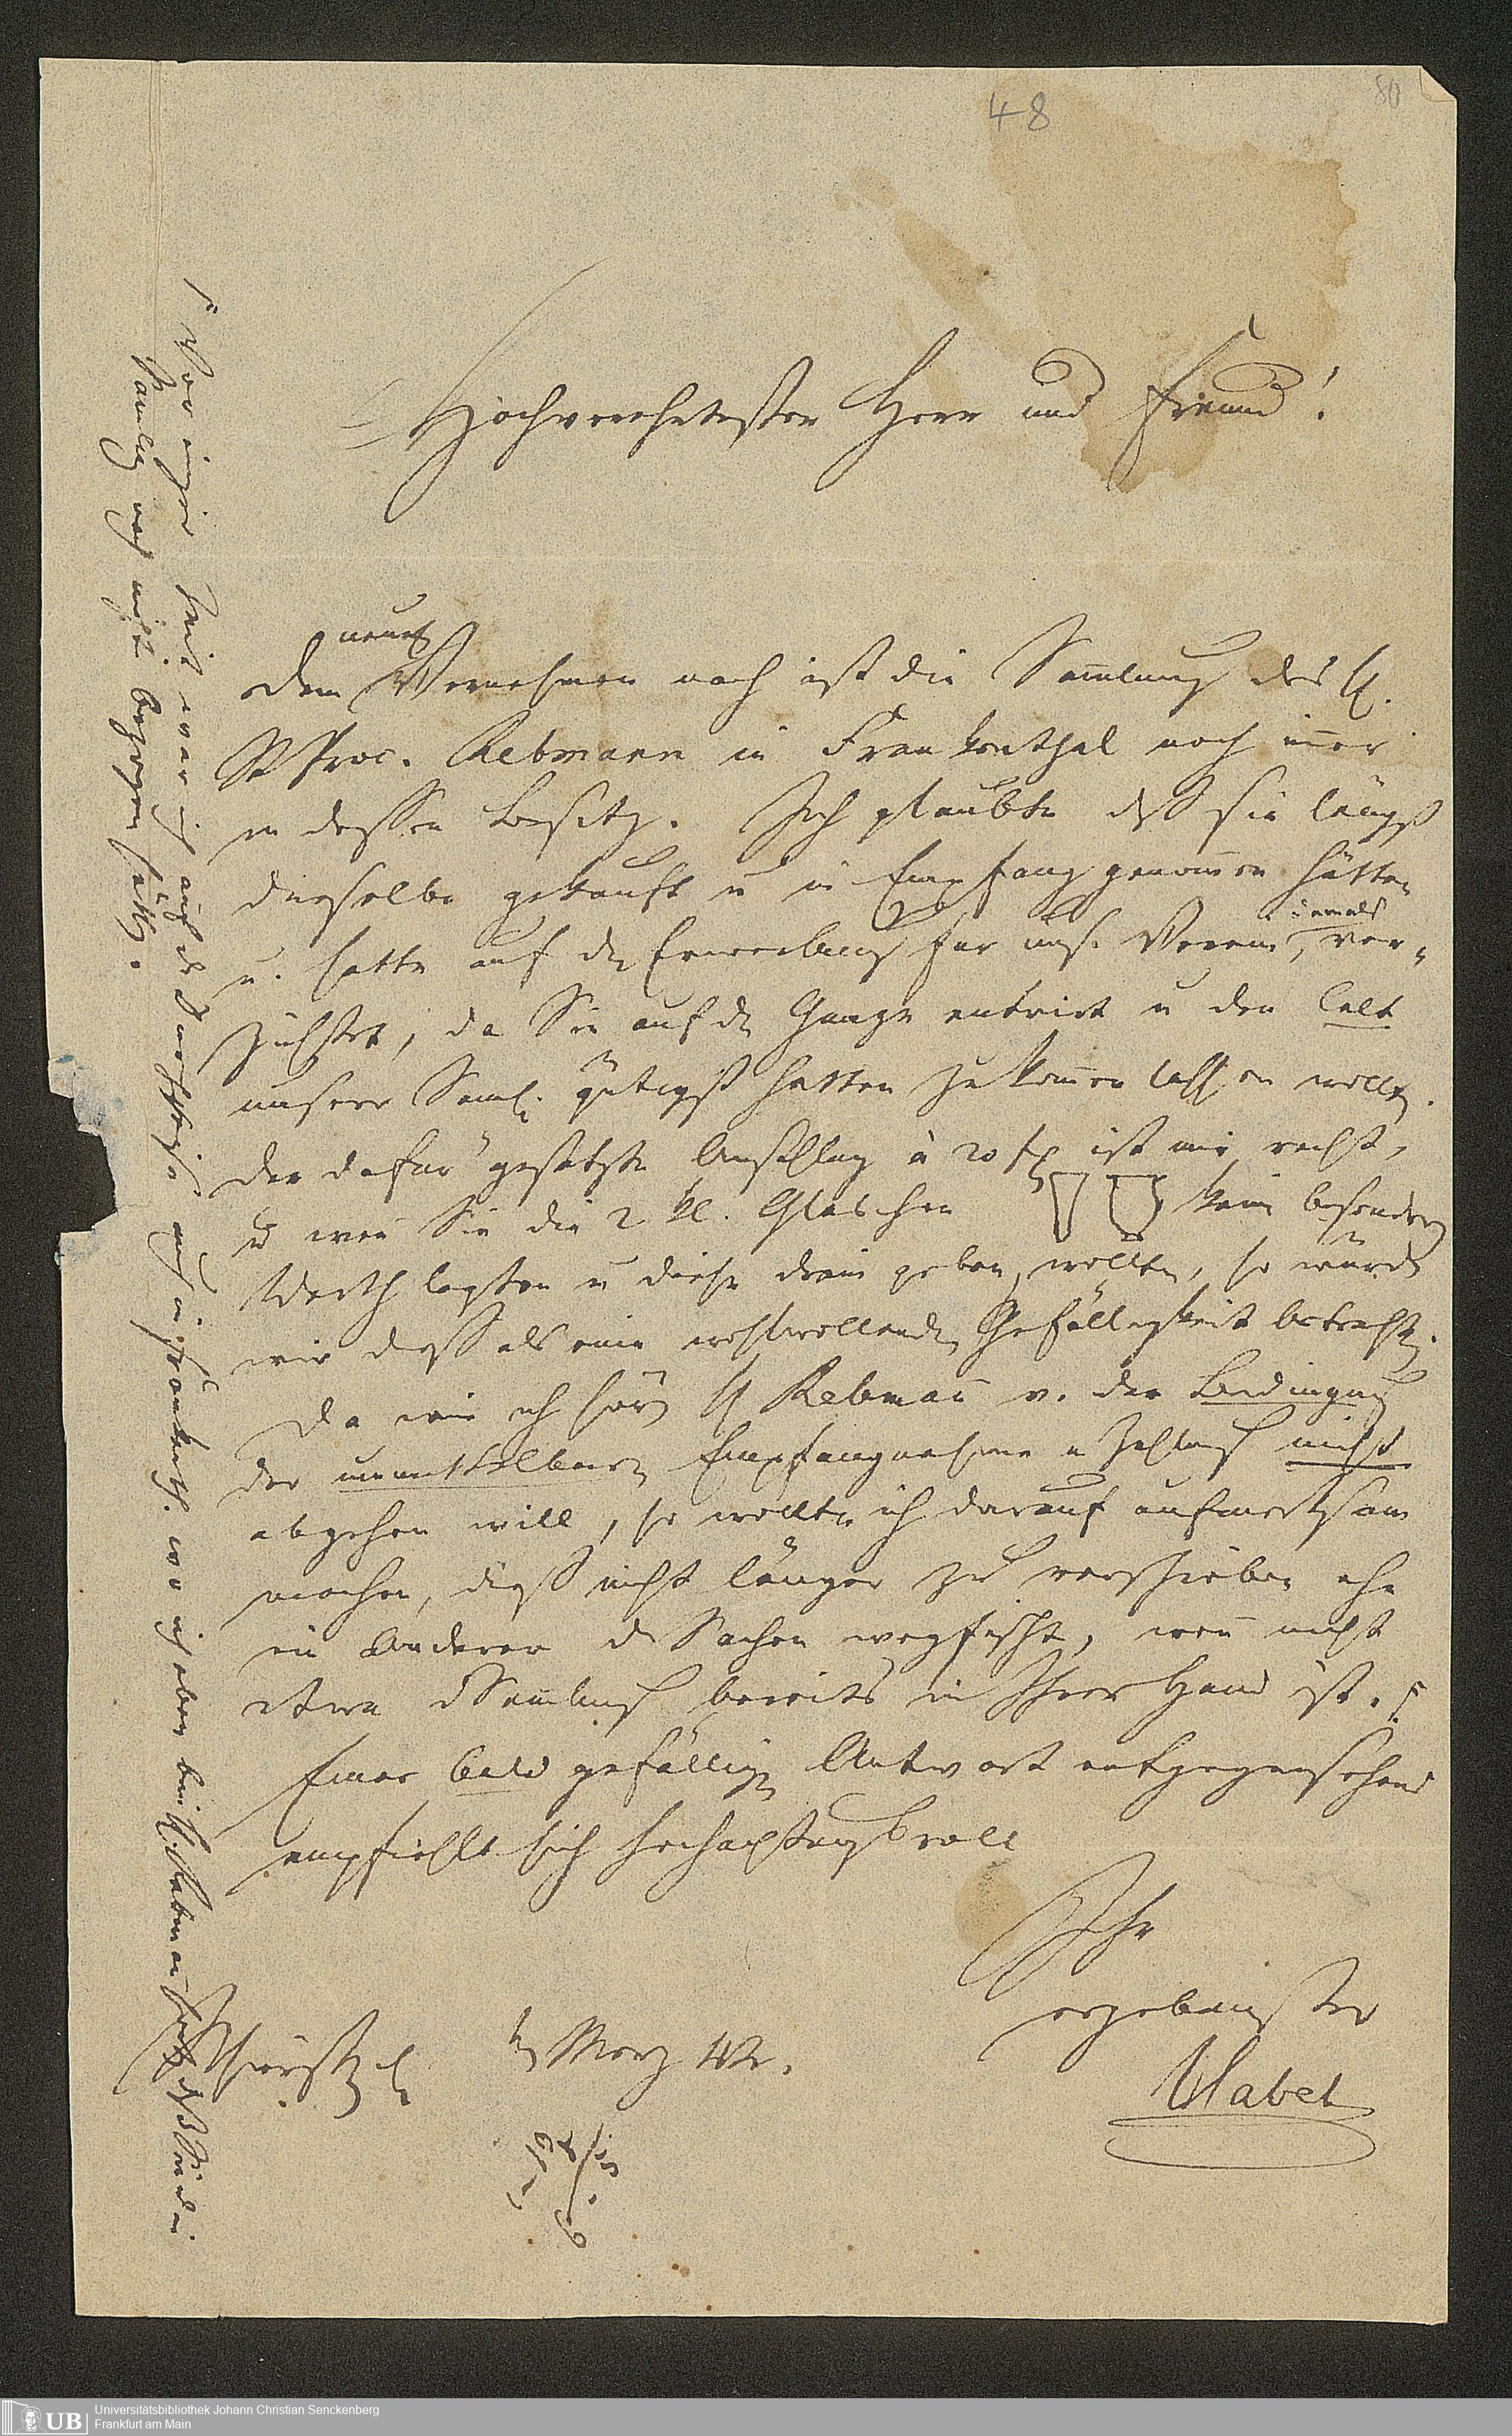 48
80
Hochverehrtester Herr und Freund!
neuest
Dem Vernehmen nach ist die Samlung des H.
St Proc. Rebmann in Frankenthal noch imer
in dessen Besitz. Ich glaubte daß sie längst
dieselbe gekauft u in Empfang genomen hätten
u. hatte auf die Erwerbung für uns. Verein,
ver-
zichtet, da Sie auf das Ganze entrirt u den Celt
unserer Saml. gütigst hatten zukomen lassen wollen.
Der dafür gesetzte Anschlag à 20 f ist mir recht,
u wen Sie die 2 kl. Gläschen kein besonderen
Werth legten u diese drein geben wollten, so würde
wir dieß als eine wohlwollende Gefälligkeit betrachten.
Da wie ich höre H Rebman v. der Bedingung
der unmittelbaren Empfangnahme u Zahlung nicht
abgehen will, so wollte ich darauf aufmerksam
machen, dieß nicht länger zu verschieben ehe
ein Anderer die Sachen wegfischt, wen nicht
etwa d Samlung bereits in Ihrer Hand ist.
Einer bald gefälligen Antwort entgegensehend
empfiehlt sich hochachtungsvoll
Ihr
ergebenster
Habel
Schierstein März 42.
Vor einiger Zeit war ich auf der Durchreise in Frankenth. wo ich aber bei H. Rebman
Samlung noch nicht bezogen hätten.
Universitätsbibliothek Johann Christian Senckenberg
Frankfurt am Main
UB